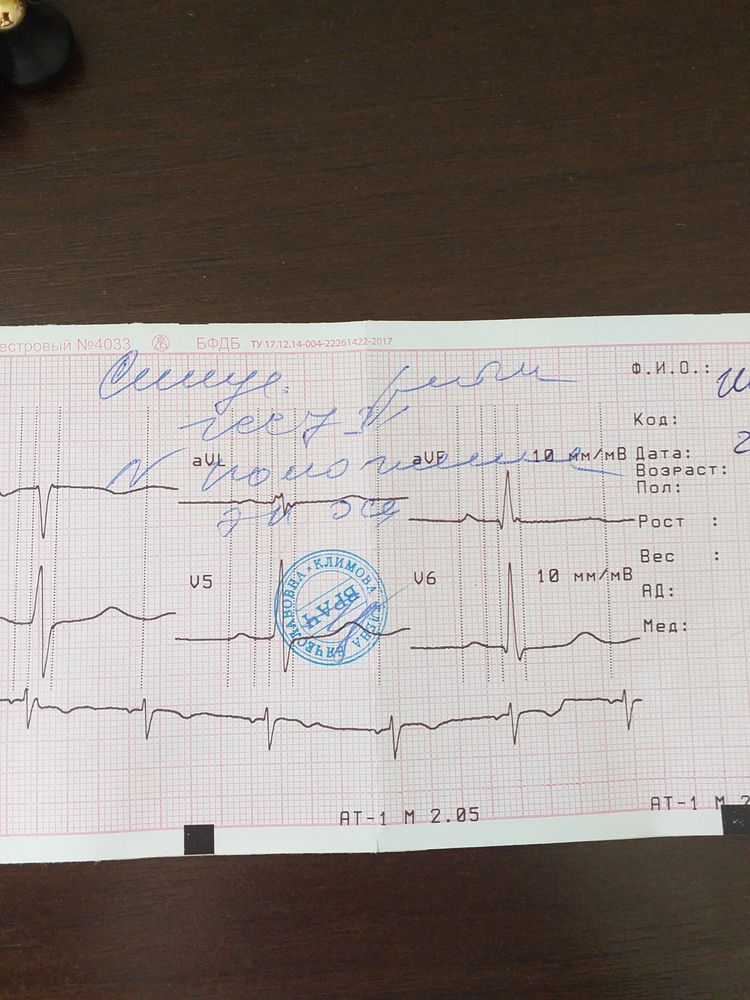 естровый №4033 БФДБ ТУ 17.12.14-004-22261422-2017
Ф.И.О.:
Код:
aVL
aVF 10 мм/мВ Дата:
Возраст:
Пол:
положение
эи эсд
Рост :
Вес :
V5
V6 10 мм/мВ
АД:
Мед:
КЛИМОВА ЕЛЕНА ВЯЧЕСЛАВОВНА
ВРАЧ
АТ-1 М 2.05
АТ-1 М 2